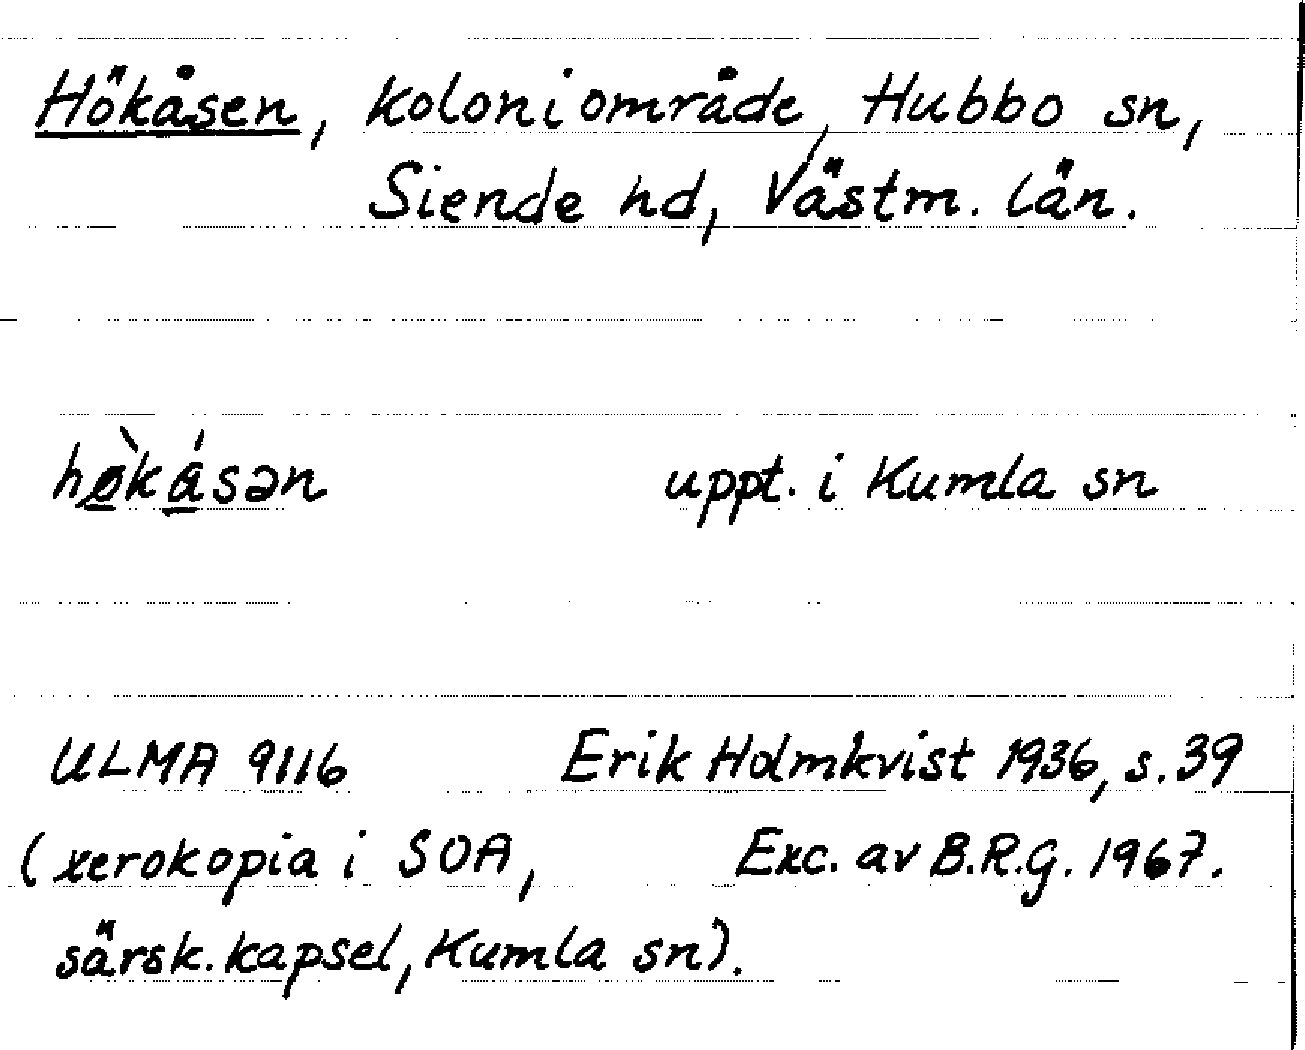 Hökåsen, koloniområde, Hubbo sn,
Siende hd, Västm. län.
hø̠̀ká̠sən uppt. i Kumla sn
ULMA 9116 Erik Holmkvist 1936, s. 39
(xerokopia i SOA, Exc. av B.R.G. 1967.
särsk. kapsel, Kumla sn).